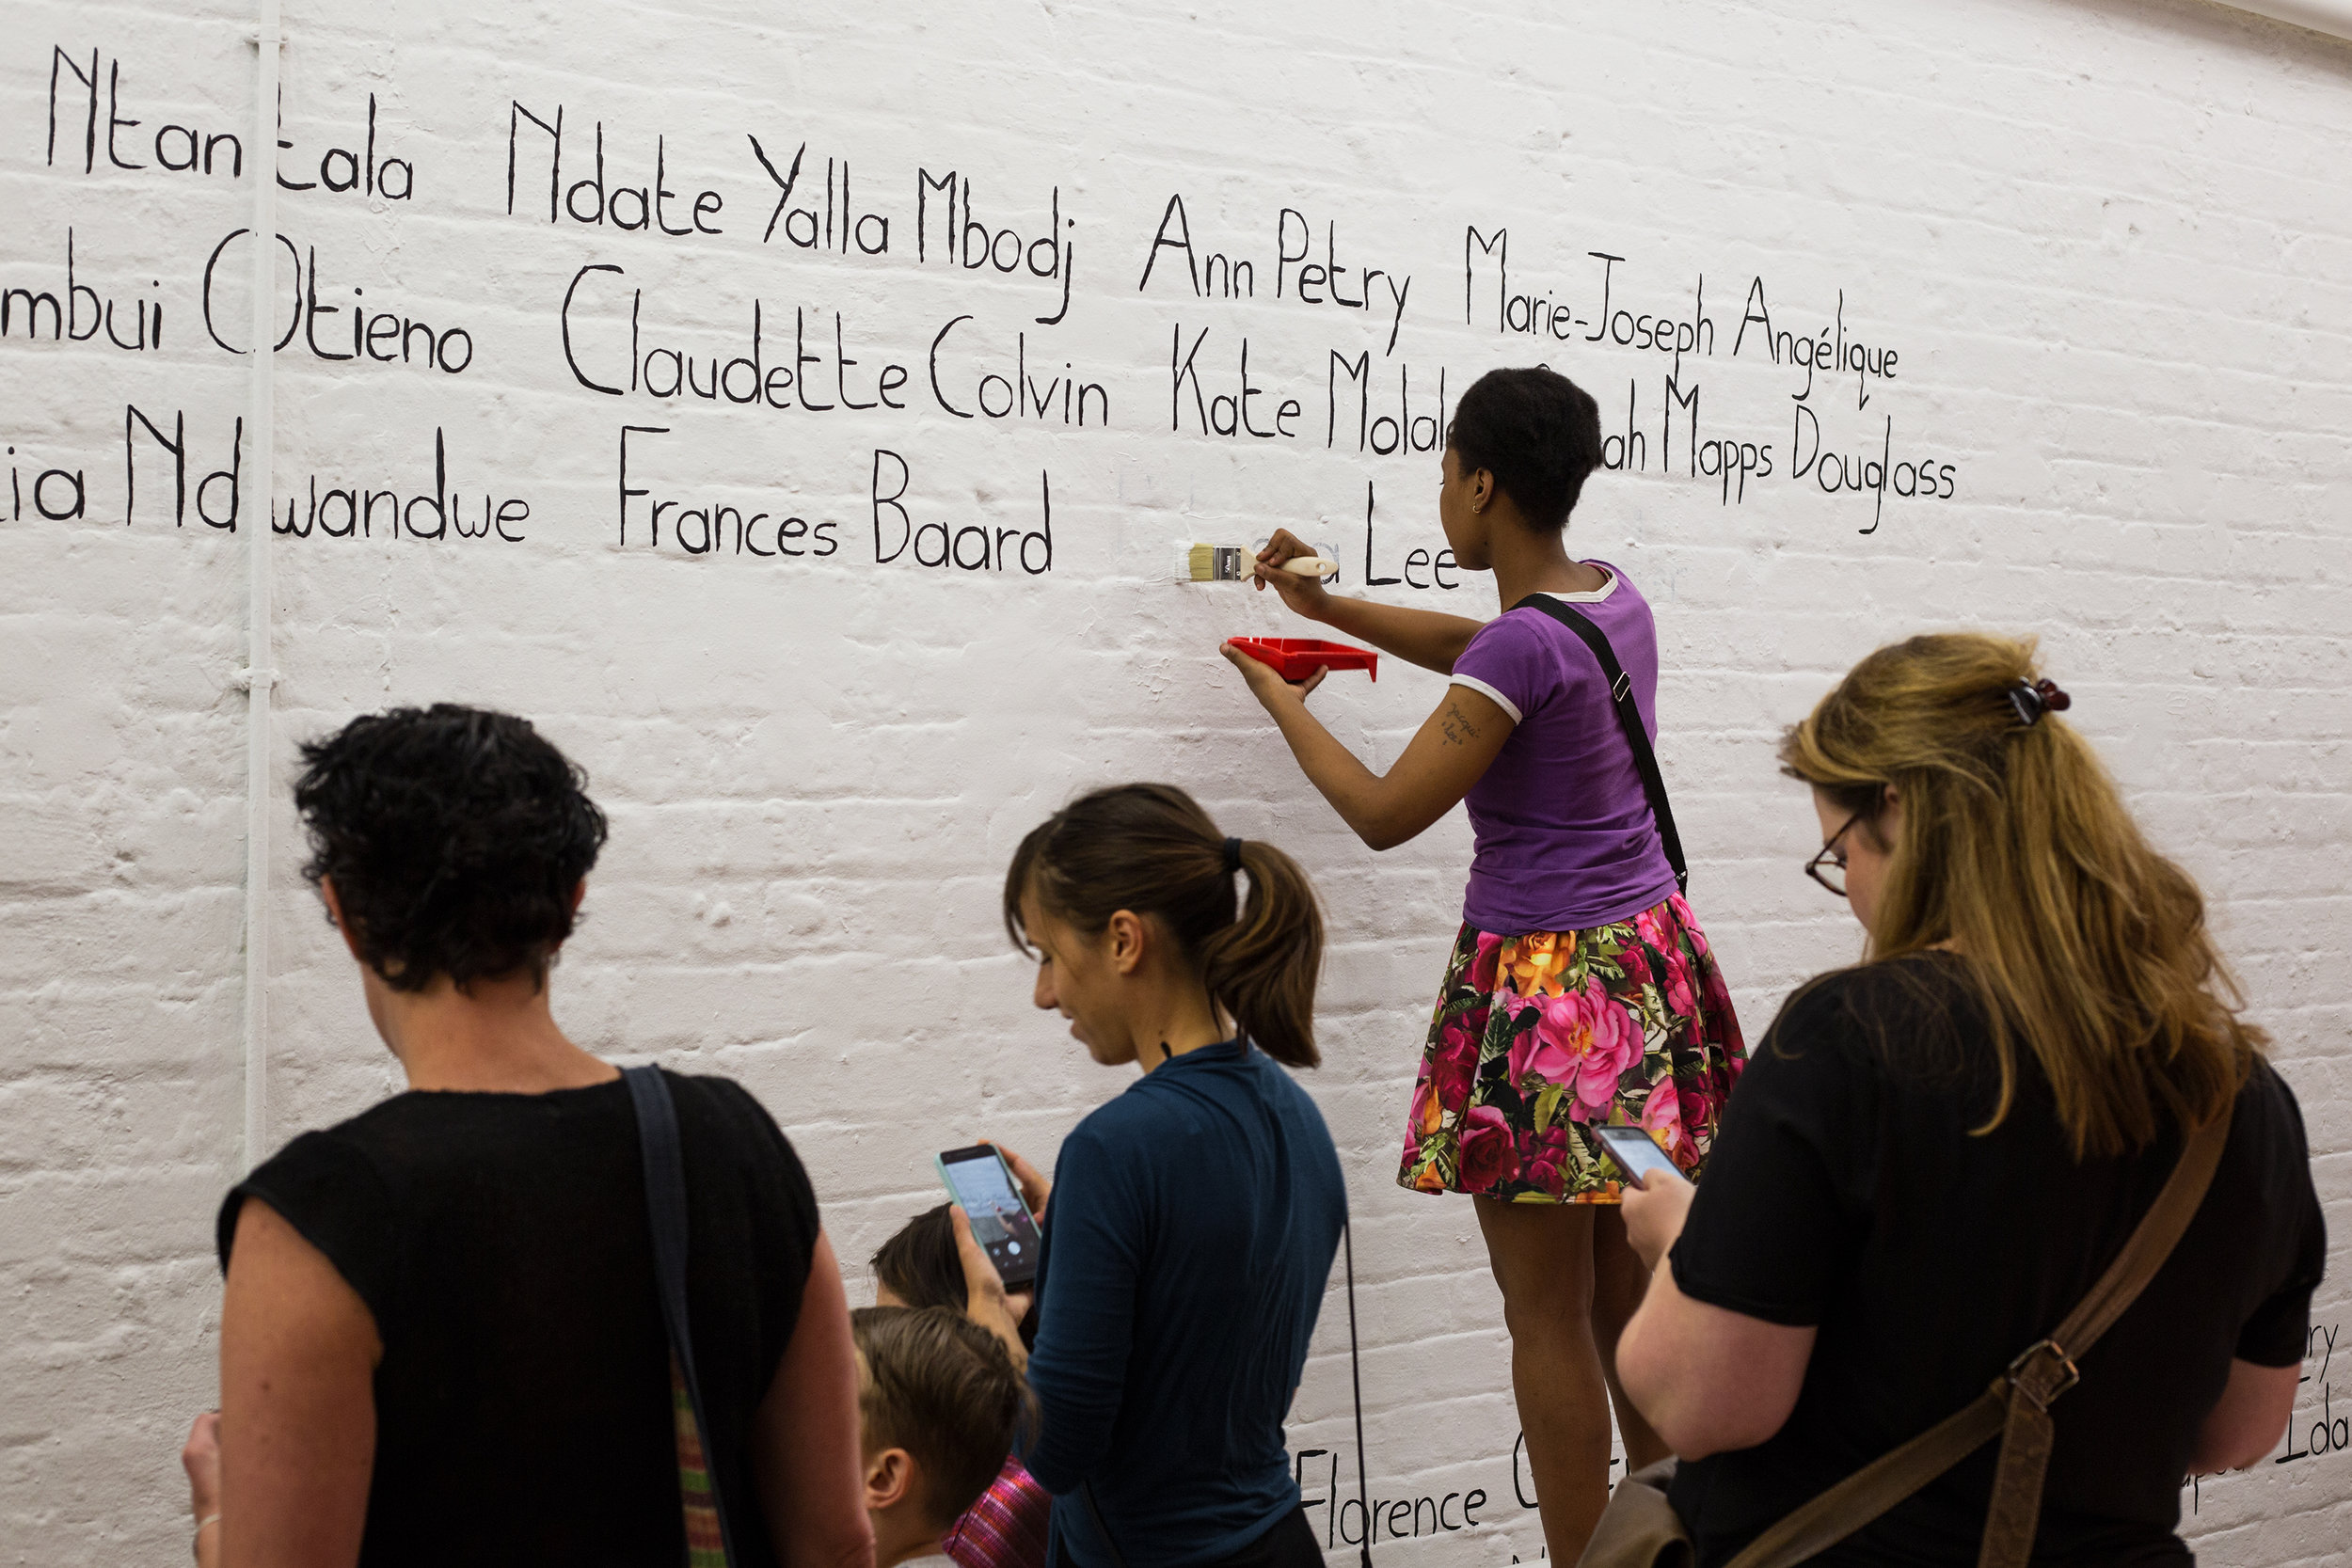 Ntantala Ndate Yalla Mbodj Ann Petry Marie-Joseph Angélique
mbui Otieno Claudette Colvin Kate Molal ah Mapps Douglass
ia Ndwandwe Frances Baard a Lee
Florence
Ida